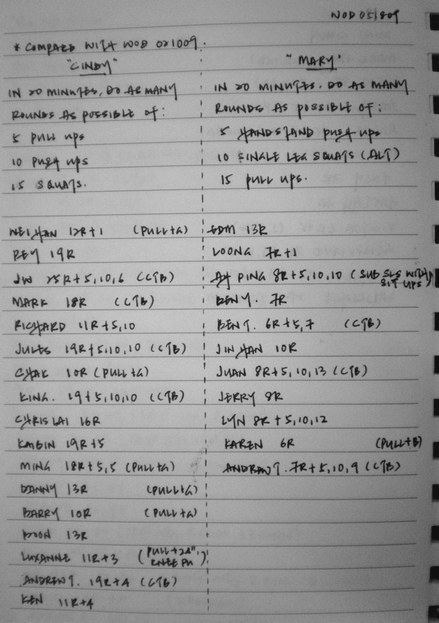 WOD 051809
* COMPARE WITH WOD 021009.
"CINDY"
IN 20 MINUTES, DO AS MANY
ROUNDS AS POSSIBLE OF:
5 PULL UPS
10 PUSH UPS
15 SQUATS.
WEISHAN 12R+1 (PULL+G)
REY 19R
JW 25R+5,10,6 (CTB)
MARK 18R (CTB)
RICHARD 11R+5,10
JULES 19R+5,10,10 (CTB)
CHAK 10R (PULL+G)
KING. 19+5,10,10 (CTB)
CHRIS LAI 16R
KAIBIN 19R+5
MING 18R+5,5 (PULL+G)
DANNY 13R (PULL+G)
BARRY 10R (PULL+G)
13R
LUXANNE 11R+3 (PULL+24", KNEE PU)
ANDREW T. 19R+4 (CTB)
KEN 11R+4
"MARY"
IN 20 MINUTES, DO AS MANY
ROUNDS AS POSSIBLE OF:
5 HANDSTAND PUSH UPS
10 SINGLE LEG SQUATS (ALT)
15 PULL UPS.
EDM 13R
LOONG 7R+1
PING 8R+5,10,10 (SUB SLS WITH SIT UPS)
BEN Y. 7R
BEN T. 6R+5,7 (CTB)
JINHAN 10R
JUAN 8R+5,10,13 (CTB)
JERRY 8R
LYN 8R+5,10,12
KAREN 6R (PULL+B)
ANDREW T. 7R+5,10,9 (CTB)